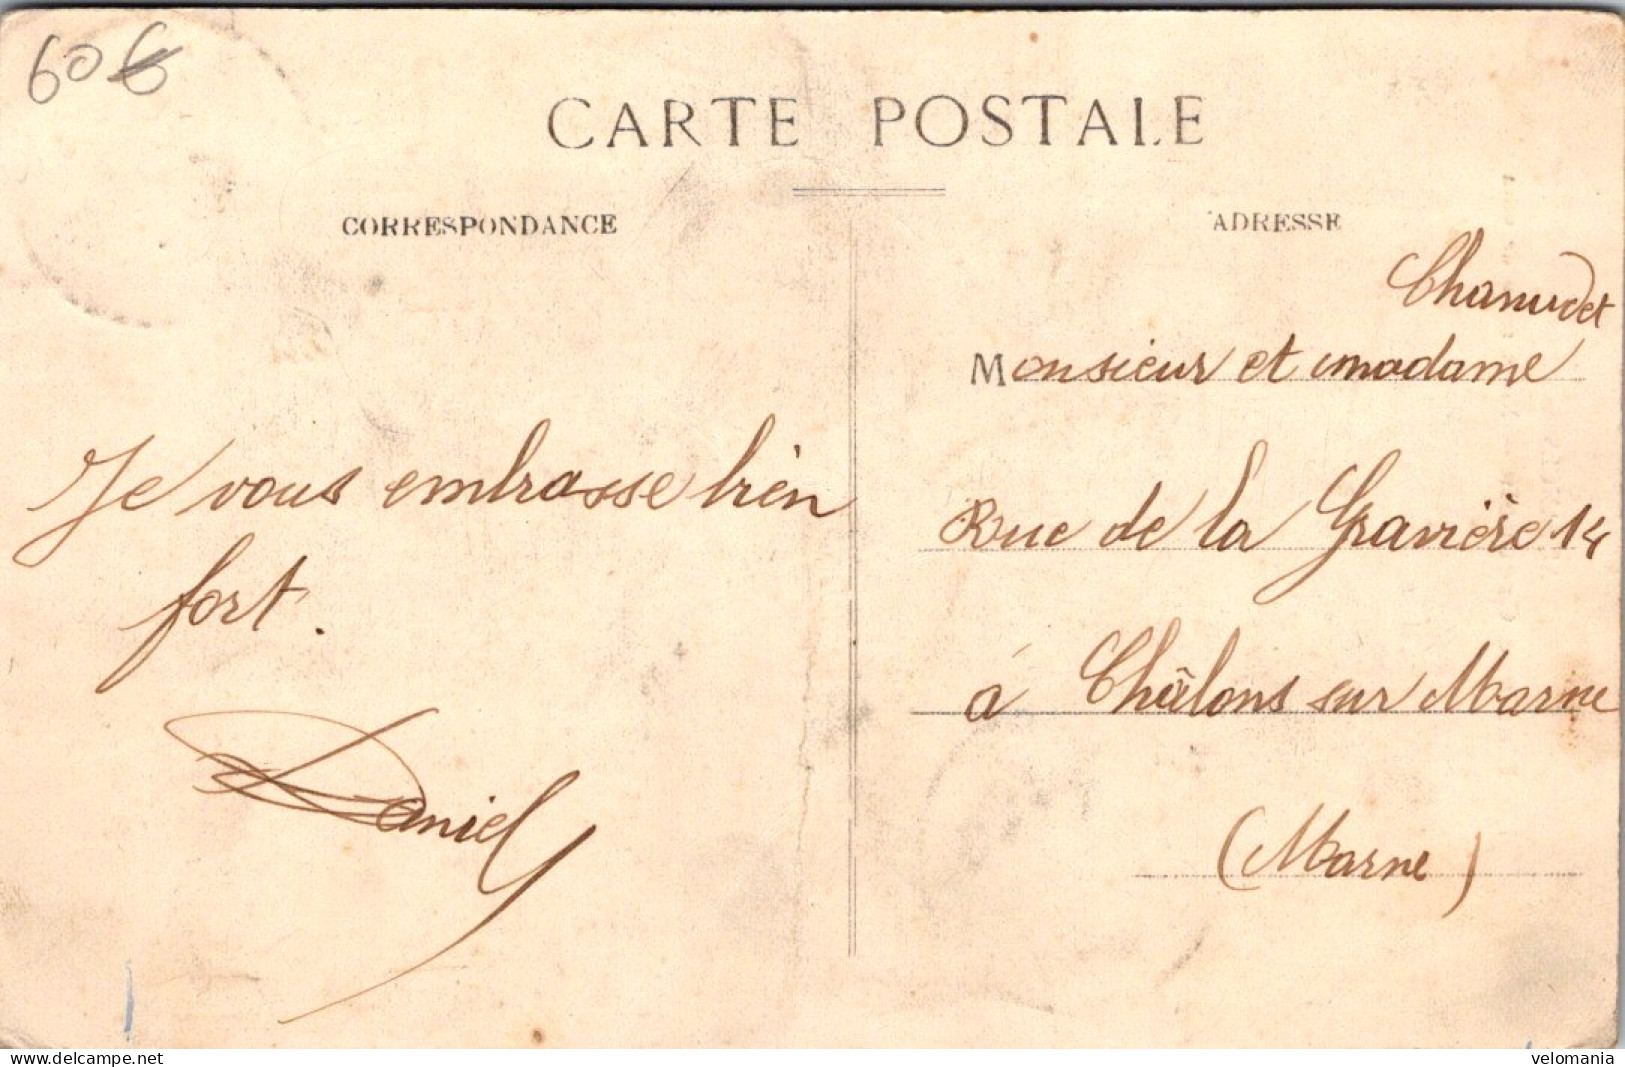 60€
CARTE POSTALE
CORRESPONDANCE
ADRESSE
Je vous embrasse bien
fort.
Daniel
Chanudet
Monsieur et madame
Rue de la Gravière 14
à Châlons sur Marne
(Marne)
velomania